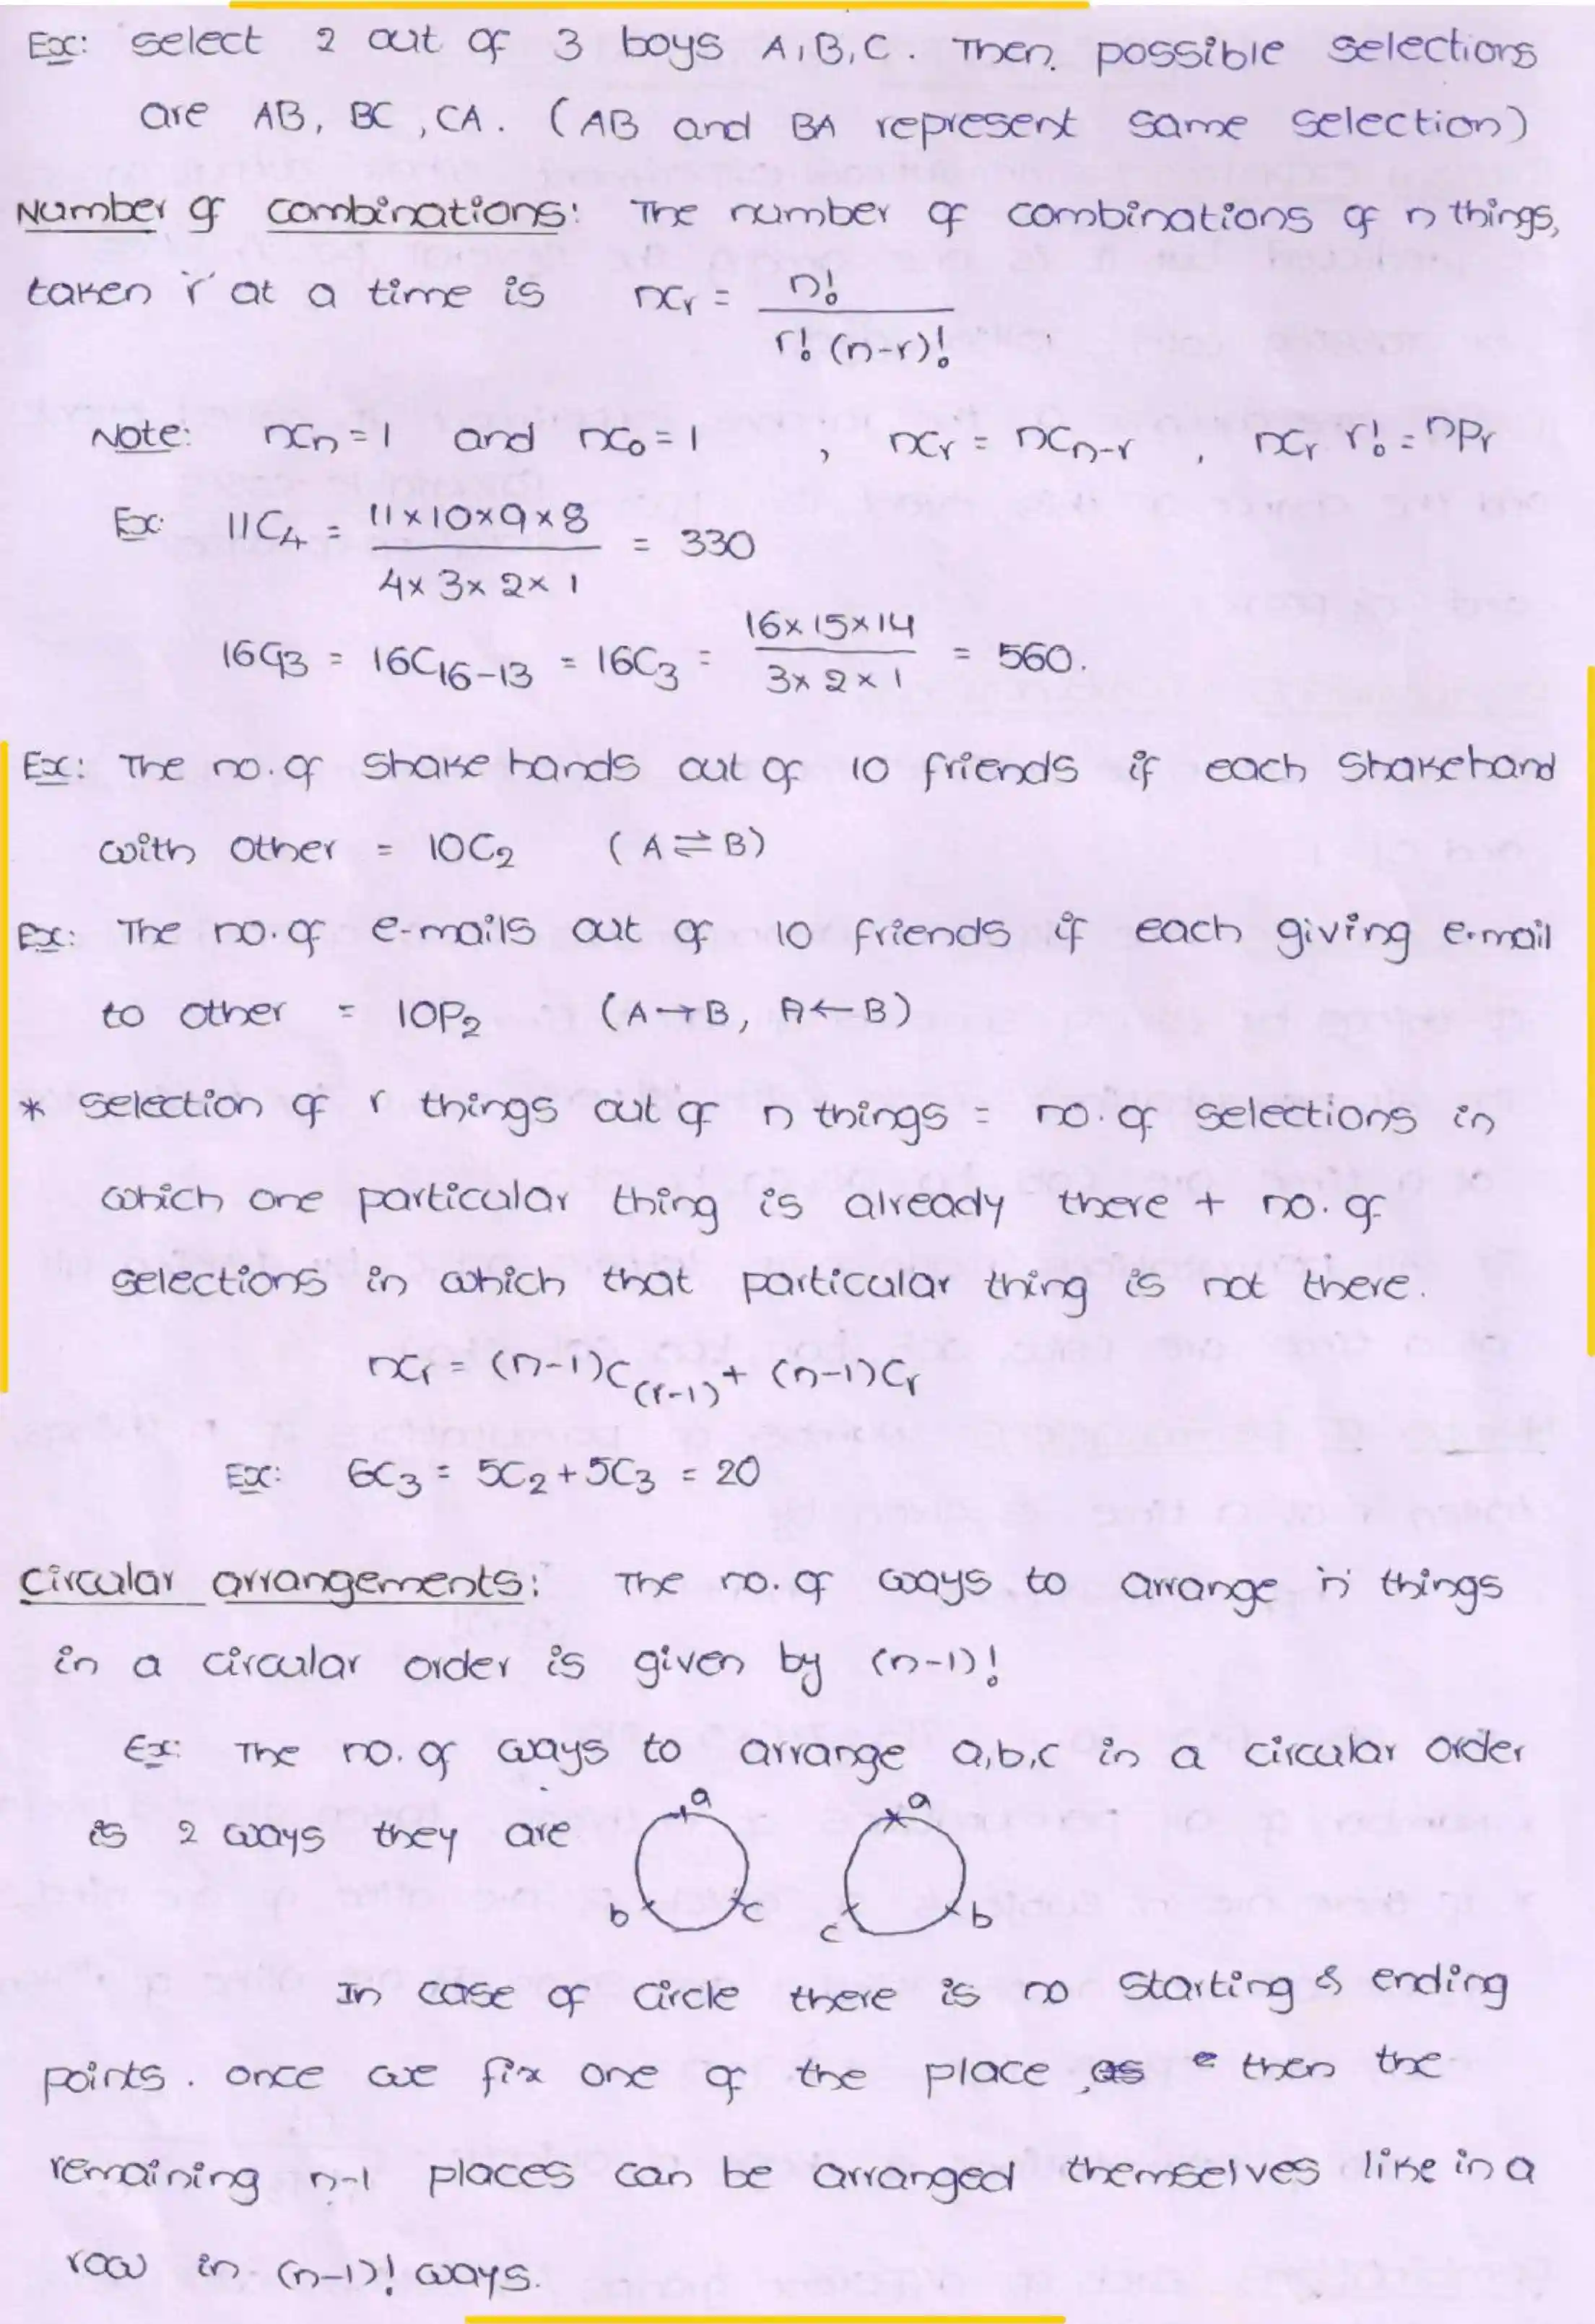 Ex: select 2 out of 3 boys A,B,C. Then possible selections
are AB, BC, CA. (AB and BA represent same selection)
Number of combinations: The number of combinations of n things,
taken 'r' at a time is nCr = n! / r! (n-r)!
Note: nCn = 1 and nC0 = 1 , nCr = nCn-r , nCr r! = nPr
Ex: 11C4 = 11×10×9×8 / 4×3×2×1 = 330
16C13 = 16C16-13 = 16C3 = 16×15×14 / 3×2×1 = 560.
Ex: The no. of shake hands out of 10 friends if each shakehand
with other = 10C2 (A⇌B)
Ex: The no. of e-mails out of 10 friends if each giving e-mail
to other = 10P2 (A→B, A←B)
* selection of r things out of n things = no. of selections in
which one particular thing is already there + no. of
selections in which that particular thing is not there.
nCr = (n-1)C(r-1) + (n-1)Cr
Ex: 6C3 = 5C2 + 5C3 = 20
Circular arrangements: The no. of ways to arrange 'n' things
in a circular order is given by (n-1)!
Ex: The no. of ways to arrange a,b,c in a circular order
is 2 ways they are
a a
b c c b
In case of circle there is no starting & ending
points. once we fix one of the place as then the
remaining n-1 places can be arranged themselves like in a
row in (n-1)! ways.